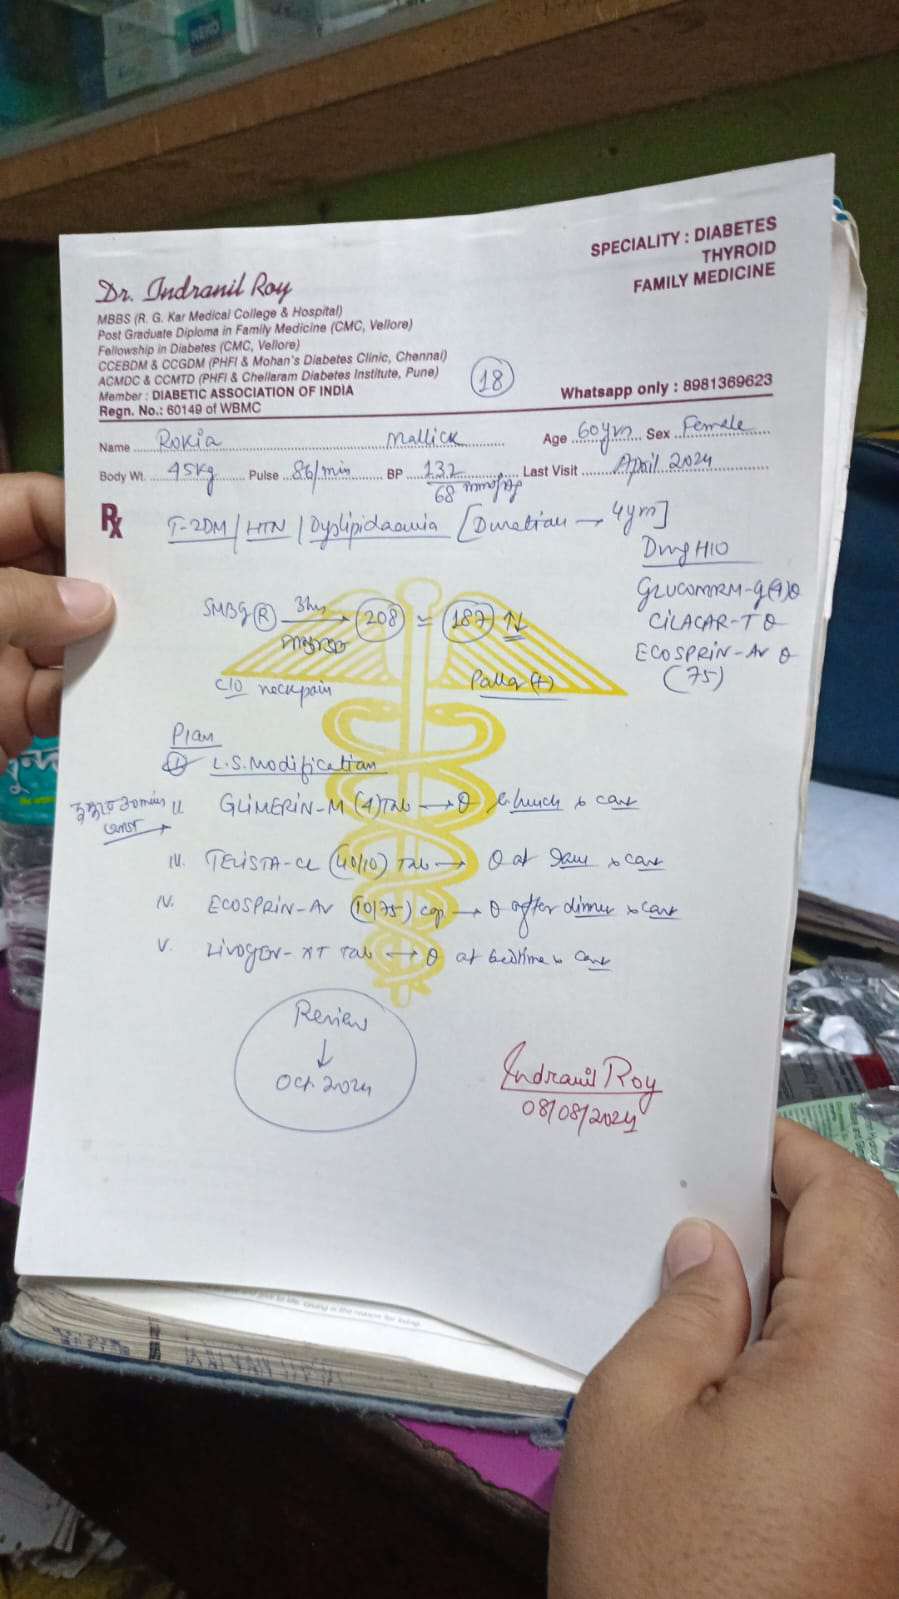 SPECIALITY : DIABETES
THYROID
FAMILY MEDICINE
Dr. Indranil Roy
MBBS (R. G. Kar Medical College & Hospital)
Post Graduate Diploma in Family Medicine (CMC, Vellore)
Fellowship in Diabetes (CMC, Vellore)
CCEBDM & CCGDM (PHFI & Mohan's Diabetes Clinic, Chennai)
ACMDC & CCMTD (PHFI & Chellaram Diabetes Institute, Pune)
Member : DIABETIC ASSOCIATION OF INDIA
Regn. No.: 60149 of WBMC
18
Whatsapp only : 8981369623
Name Rokia Mallick Age 60yrs Sex Female
Body Wt. 45kg Pulse 86/min BP 132/68 mmHg Last Visit April 2024
Rx T-2DM / HTN / Dyslipidaemia [Duration → 4yrs]
Drug H/O
GLUCONORM-G(4)
CILACAR-T
ECOSPRIN-AV
(75)
SMBG (R) 3hrs → 208 187 ↑↓
C/O neck pain Pallor (+)
Plan
L.S. Modification
II. GLIMERIN-M (4) Tab → lunch cont
III. TELISTA-CL (40/10) Tab → at cont
IV. ECOSPRIN-AV (10/75) cap → after dinner cont
V. LIVOGEN-XT Tab → at bedtime cont
Review
↓
Oct. 2024
Indranil Roy
08/08/2024